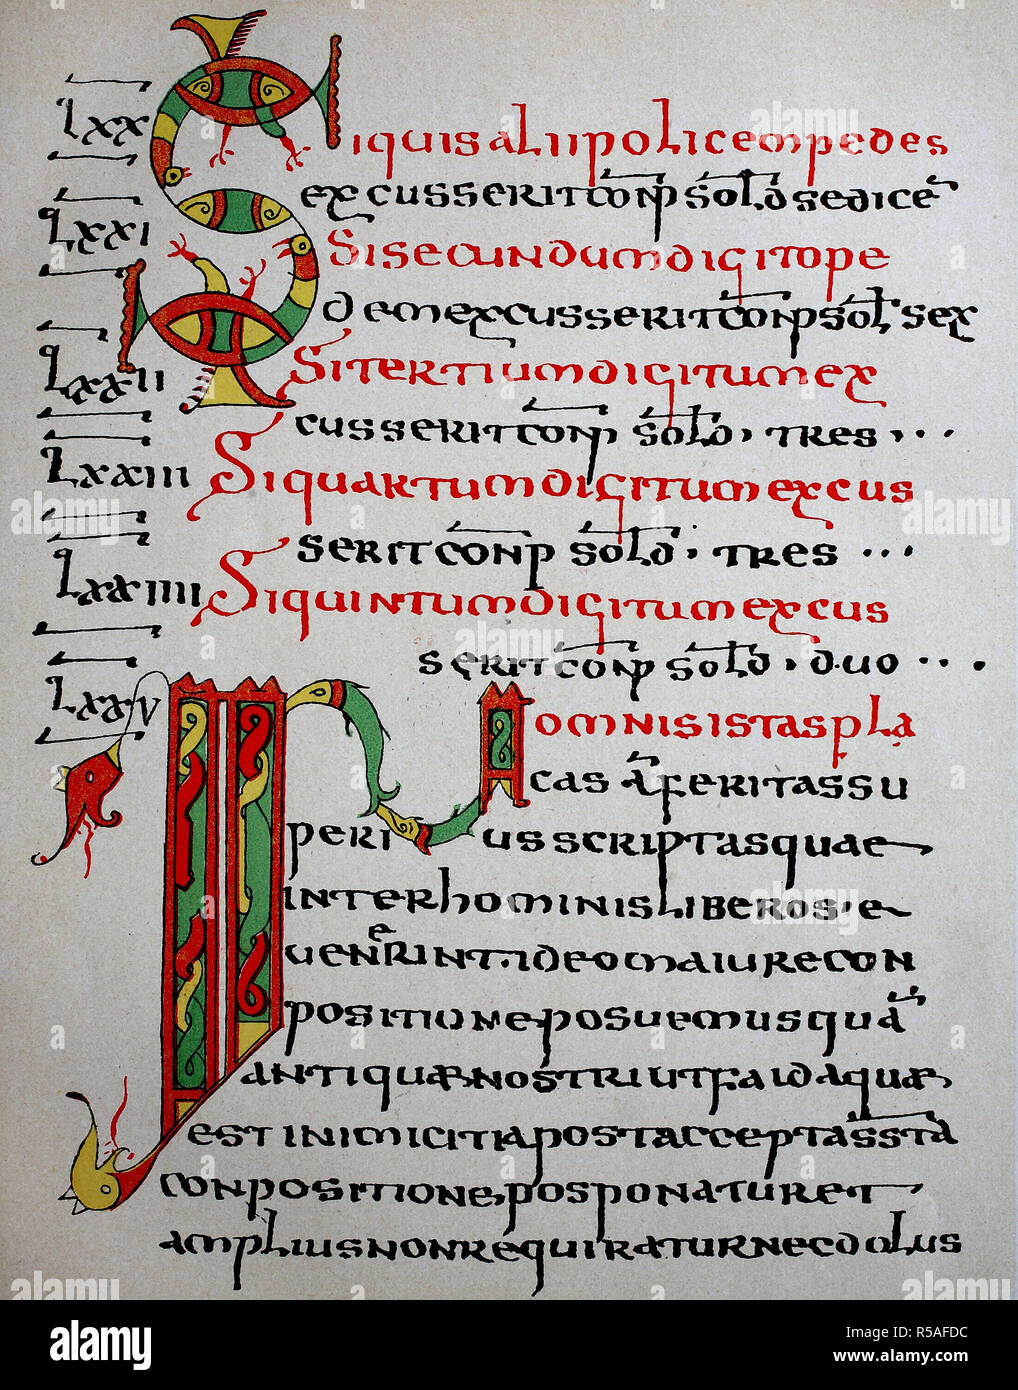 LXX SIQUIS ALII POLICEM PEDES
EXCUSSERIT CONP SOLD SEDICE
LXXI SI SECUNDUM DIGITO PE
DEM EXCUSSERIT CONP SOL SEX
LXXII SI TERTIUM DIGITUM EX
CUSSERIT CONP SOLD · TRES · · ·
LXXIII SI QUARTUM DIGITUM EXCUS
SERIT CONP SOLD · TRES · · ·
LXXIIII SI QUINTUM DIGITUM EXCUS
SERIT CONP SOLD · DUO · · ·
LXXV IN OMNIS ISTAS PLA
CAS FERITAS SU
PERIUS SCRIPTAS QUAE
INTER HOMINIS LIBEROS · E
UENERINT · IDEO MAIURE CON
POSITIONE POSUEMUS QUA
ANTIQUAE NOSTRI UT FAIDA QUAE
EST INIMICITIA POST ACCEPTA SSTA
CONPOSITIONE, POSPONATUR ET
AMPLIUS NON REQUIRATUR NEC DOLUS
alamy
Image ID: R5AFDC
www.alamy.com